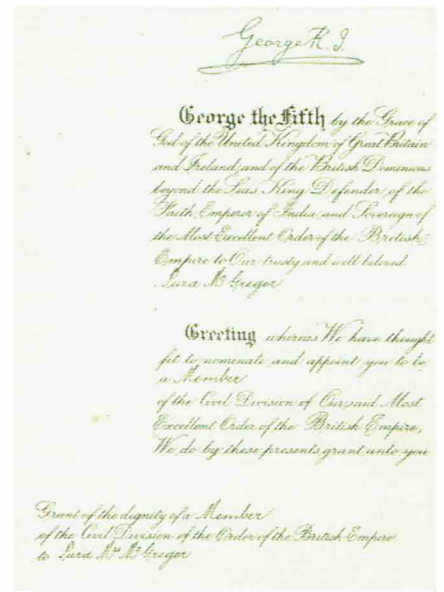 George R. I.
George the Fifth by the Grace of
God of the United Kingdom of Great Britain
and Ireland and of the British Dominions
beyond the Seas, King, Defender of the
Faith, Emperor of India and Sovereign of
the Most Excellent Order of the British
Empire to Our trusty and well beloved
McGregor
Greeting whereas We have thought
fit to nominate and appoint you to be
a Member
of the Civil Division of Our said Most
Excellent Order of the British Empire,
We do by these presents grant unto you
Grant of the dignity of a Member
of the Civil Division of the Order of the British Empire
to McGregor